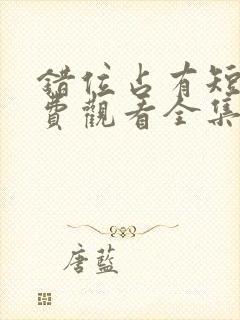 錯位占有短
費觀看全集
唐藍